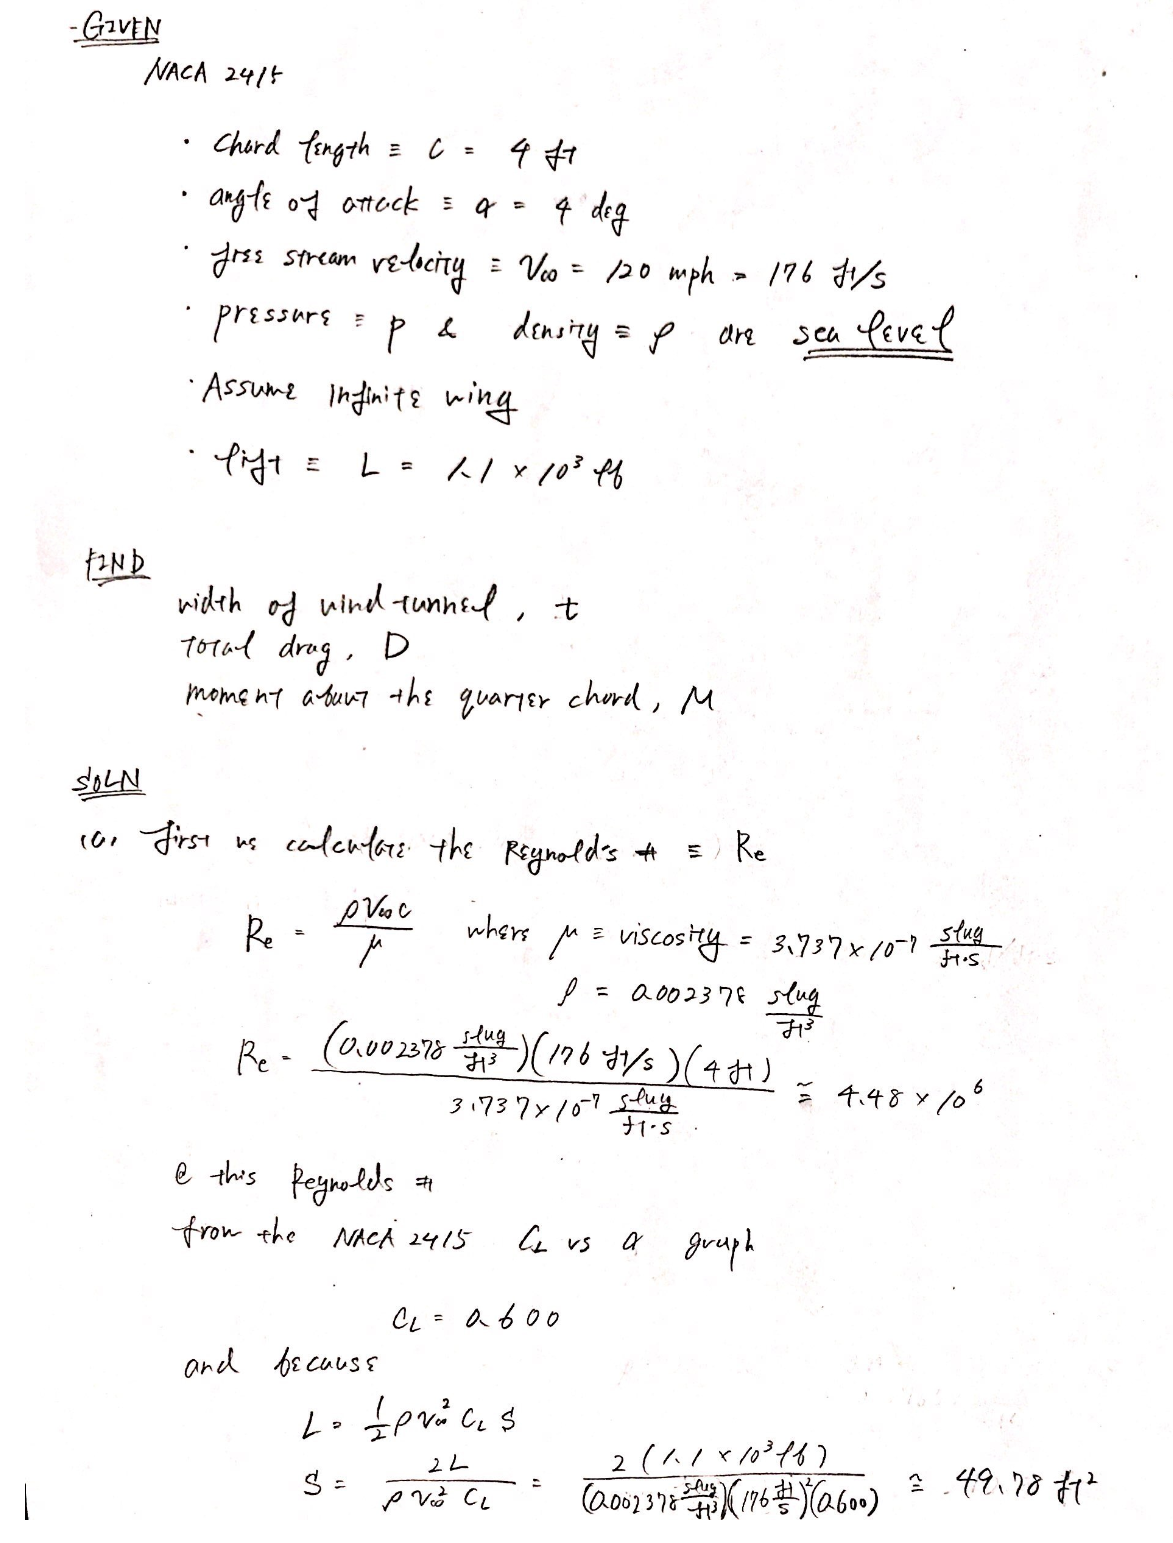 - GIVEN
NACA 2415
· Chord length ≡ C = 4 ft
· angle of attack ≡ α = 4 deg
· free stream velocity ≡ V∞ = 120 mph = 176 ft/s
· pressure ≡ p & density ≡ ρ are sea level
· Assume Infinite wing
· lift ≡ L = 1.1 × 10³ lb
FIND
width of wind tunnel, t
total drag, D
moment about the quarter chord, M
SOLN
(a) first we calculate the Reynold's # ≡ Re
Re = ρV∞C / μ where μ ≡ viscosity = 3.737 × 10⁻⁷ slug / ft·s
ρ = 0.002378 slug / ft³
Re = (0.002378 slug / ft³)(176 ft/s)(4 ft) / 3.737 × 10⁻⁷ slug / ft·s ≅ 4.48 × 10⁶
@ this Reynolds #
from the NACA 2415 CL vs α graph
CL = 0.600
and because
L = 1/2 ρV∞² CL S
S = 2L / ρV∞² CL = 2(1.1 × 10³ lb) / (0.002378 slug / ft³)(176 ft / s)²(0.600) ≅ 49.78 ft²